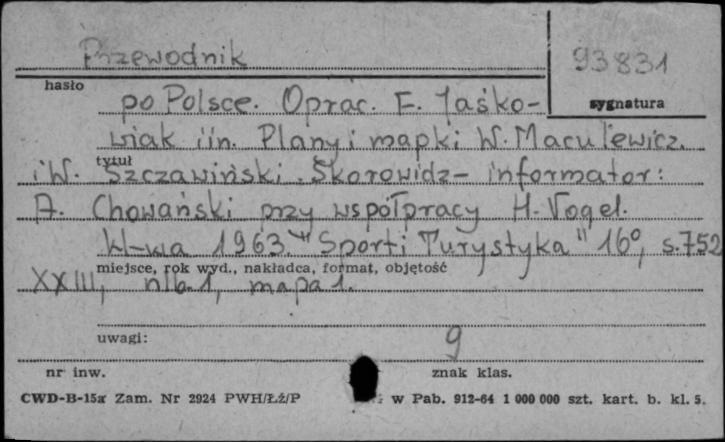 Przewodnik
93831
hasło
sygnatura
po Polsce. Oprac. F. Jaśko-
wiak i in. Plany i mapki W. Maculewicz.
tytuł
i W. Szczawiński. Skorowidz- informator:
A. Chowański przy współpracy H. Vogel.
W-wa 1963. "Sport i Turystyka" 16°, s. 752
miejsce, rok wyd., nakładca, format, objętość
XXIII, nlb. 1, mapa 1.
uwagi:
9
nr inw.
znak klas.
CWD-B-15a Zam. Nr 2924 PWH/Łź/P w Pab. 912-64 1 000 000 szt. kart. b. kl. 5.